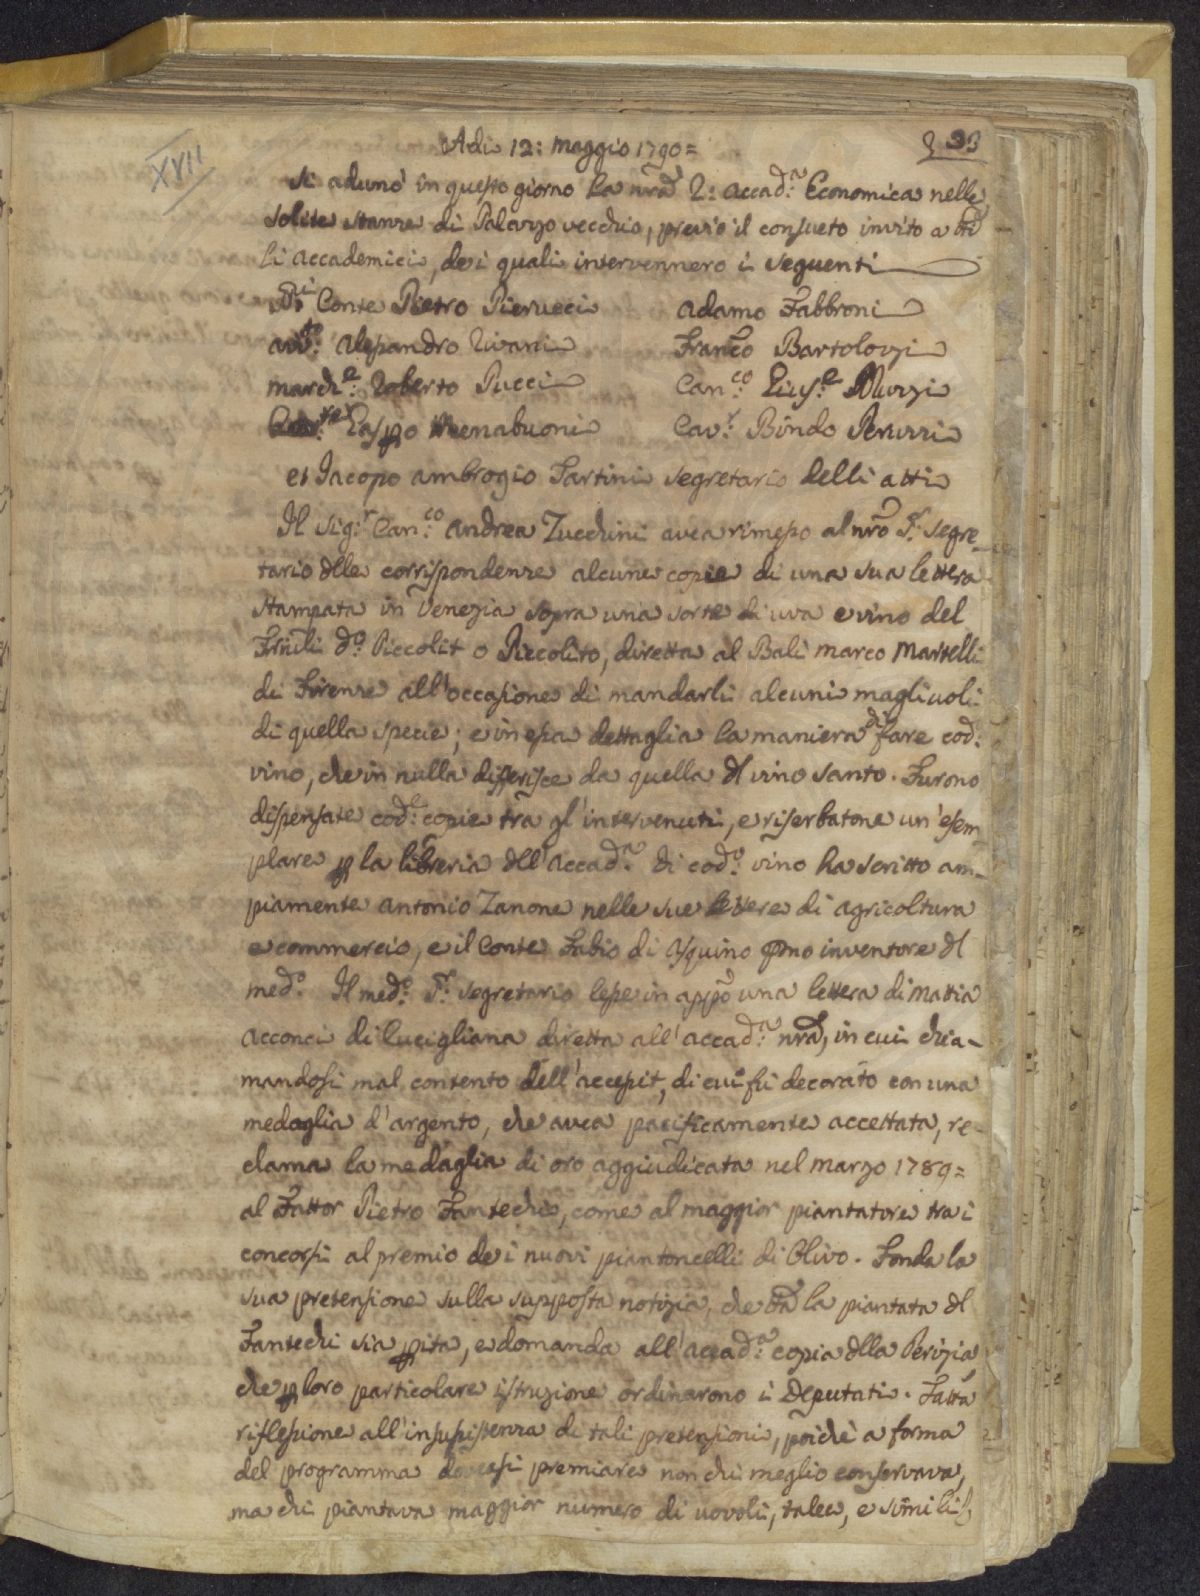 XVII
Adi 12: Maggio 1790=
Si adunò in questo giorno la nrã R: Accad:ª Economica nelle
solite stanze di Palazzo vecchio, previo il consueto invito a tti
li Accademici, dei quali intervennero i seguenti
Conte Pietro Pierucci
Adamo Fabbroni
Avv:to Alessandro Rivani
Franco Bartolozzi
March:e Roberto Pucci
Can:co Gius:e Muzzi
Gaspo Menabuoni
Cav:r Bindo Peruzzi
et Jacopo Ambrogio Sartini Segretario delli atti
Il Sig:r Can:co Andrea Zucchini avea rimesso al nrõ S:r Segre-
tario dlle corrispondenze alcune copie di una sua lettera
stampata in Venezia sopra una sorte di uva e vino del
Friuli do: Piccolit o Piccolito, diretta al Balì Marco Martelli
di Firenze all'occasione di mandarli alcuni magliuoli
di quella specie; e in essa dettaglia la maniera di fare cod:
vino, che in nulla differisce da quella dl vino santo. Furono
dispensate cod:e copie tra gl'intervenuti, e riserbatone un'esem
plare p la libreria dll'Accad:ª Di cod:o vino ha scritto am-
piamente Antonio Zanone nelle sue lettere di agricoltura
e commercio, e il Conte Fabio di Asquino pmo inventore dl
med:o Il med:o S:r Segretario lesse in appo una lettera di Mattia
Acconci di Lucigliana diretta all'Accad:ª nrã, in cui chia-
mandosi mal contento dell'accessit, di cui fù decorato con una
medaglia d'argento, che avea pacificamente accettata, re-
clama la medaglia di oro aggiudicata nel Marzo 1789=
al Fattor Pietro Fantechi, come al maggior piantatore tra i
concorsi al premio dei nuovi piantoncelli di Olivo. Fonda la
sua pretensione sulla supposta notizia, che tta la piantata dl
Fantechi sia pita, e domanda all'Accad:ª copia dlla Perizia
che p loro particolare istruzione ordinarono i Deputati. Fatta
riflessione all'insussistenza di tali pretensioni, poichè a forma
del programma dovessi premiare non chi meglio conservava,
ma chi piantava maggior numero di uovoli, talee, e simili